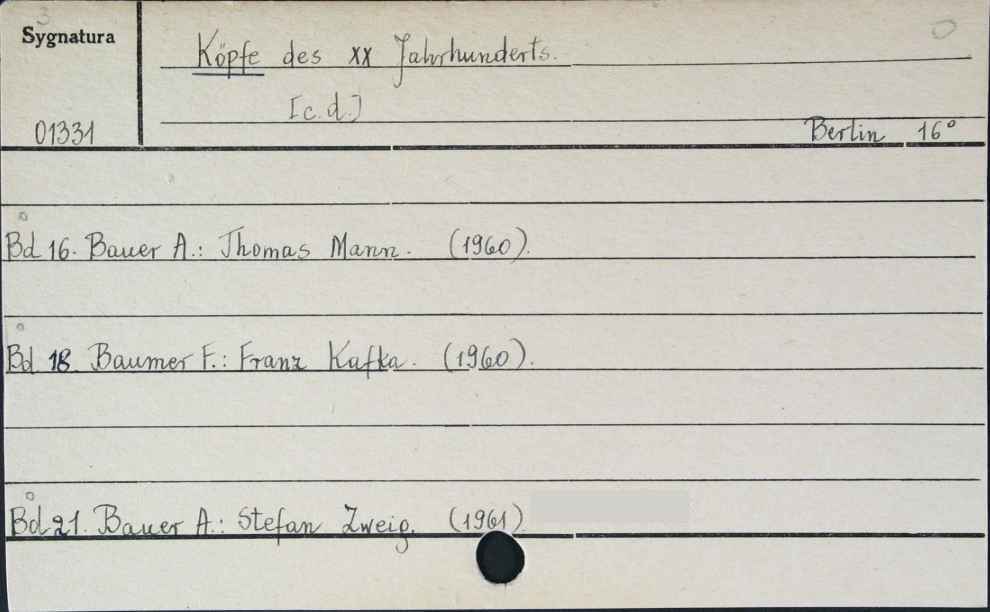 3
Sygnatura
Köpfe des XX Jahrhunderts.
[c.d.]
01331
Berlin 16°
Bd 16. Bauer A.: Thomas Mann. (1960).
Bd 18. Baumer F.: Franz Kafka. (1960).
Bd 21. Bauer A.: Stefan Zweig. (1961)